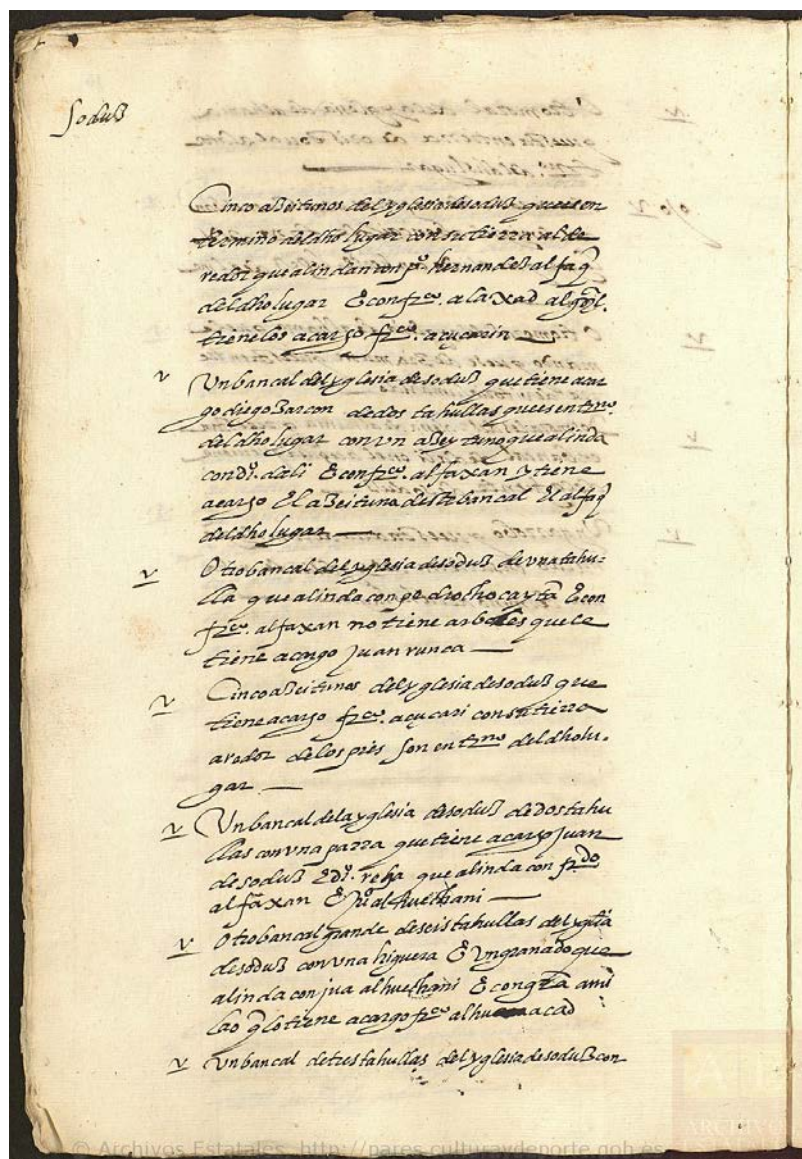 Soduz
Cinco azeitunos del yglesia de soduz que es en
termino del dho lugar con su tierra al de
redor que alindan con po hernandez alfaq
del dho lugar E con frco. alaxad
tienelos a cargo frco. açucarin
v Un bancal del yglesia de soduz que tiene a car
go diego Barcon de dos tahullas que es en tmo.
del dho lugar con vn azeytuno que alinda
con do. dali E con frco. alfaxan y tiene
a cargo El azeituno deste bancal El alfaq
del dho lugar
v Otro bancal del yglesia de soduz de vna tahu-
lla que alinda con E con
frco. alfaxan no tiene arboles que le
tiene a cargo Juan runca
v Cinco azeitunos del yglesia de soduz que
tiene a cargo frco. açucari con su tierra
aredor de los pies son en tmo del dho lu-
gar
v Un bancal de la yglesia de soduz de dos tahu
llas con vna parra que tiene a cargo Juan
de soduz E do. reha que alinda con fdo
alfaxan E juo alhuechani
v Otro bancal grande de seis tahullas del yglia
de soduz con vna higuera E Un granado que
alinda con jua alhuechani E con gra ami
lao q lo tiene a cargo frco
v Un bancal de tres tahullas del yglesia de soduz con
© Archivos Estatales, http://pares.culturaydeporte.gob.es
ARCHIVO